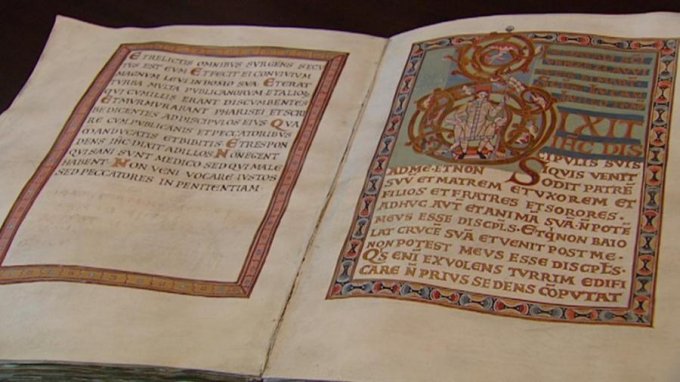 ETRELICTIS OMNIBUS SVRGENS SECV
TUS EST EUM ET FECIT EI CONVIVIUM
MAGNUM LEVI IN DOMO SVA ETERAT
TVRBA MVLTA PUBLICANORUM ETALIOR
QVI CVMILLIS ERANT DISCVMBENTES
ETMVRMVRABANT PHARISEI ET SCRI
BE DICENTES AD DISCIPULOS EIVS QVA
RE CVM PUBLICANIS ET PECCATORIBVS
MANDVCATIS ETBIBITIS ETRESPON
DENS IHC DIXIT AD ILLOS NON EGENT
QVI SANI SVNT MEDICO SED QVI MALE
HABENT NON VENI VOCARE IVSTOS
SED PECCATORES IN PENITENTIAM
LXII
IHC DIS
CIPULIS SUIS
SIQVIS VENIT
AD ME ET NON ODIT PATRĒ
SVV ET MATREM ETVXOREM ET
FILIOS ET FRATRES ET SORORES
ADHVC AVT ET ANIMA SVĀ N POTE
MEUS ESSE DISCPLS ET Q NON BAIO
LAT CRVCĒ SVĀ ETVENIT POST ME
NON POTEST MEUS ESSE DISCPLS
QS ENI EXVOLENS TVRRIM EDIFI
CARE N PRIUS SEDENS COPVTAT